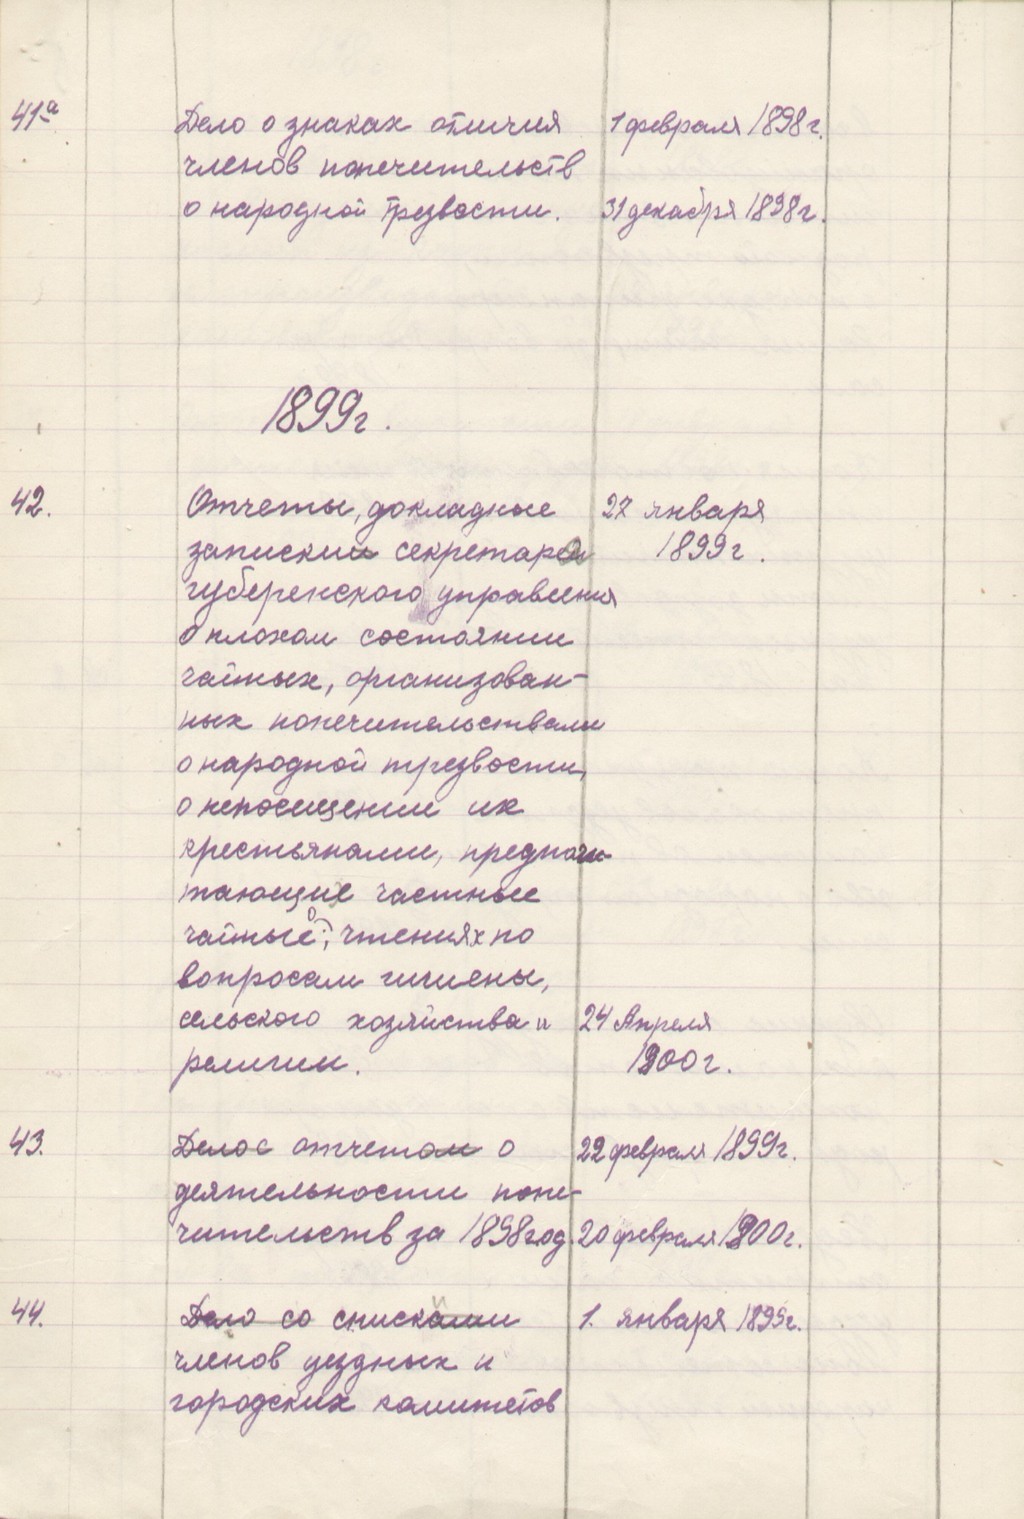 41а Дело о знаках отличия 1 февраля 1898 г.
членов попечительств
о народной трезвости. 31 декабря 1898 г.
1899 г.
42. Отчеты, докладные 27 января
записки секретаря 1899 г.
губеренского управления
о плохом состоянии
чайных, организован-
ных попечительствами
о народной трезвости,
о непосещении их
крестьянами, предпочи-
тающие частные
чайные; о чтениях по
вопросам гигиены,
сельского хозяйства и 24 Апреля
религии. 1900 г.
43. Дело с отчетом о 22 февраля 1899 г.
деятельности попе-
чительств за 1898 год. 20 февраля 1900 г.
44. Дело со списками 1. января 1899 г.
членов уездных и
городских комитетов